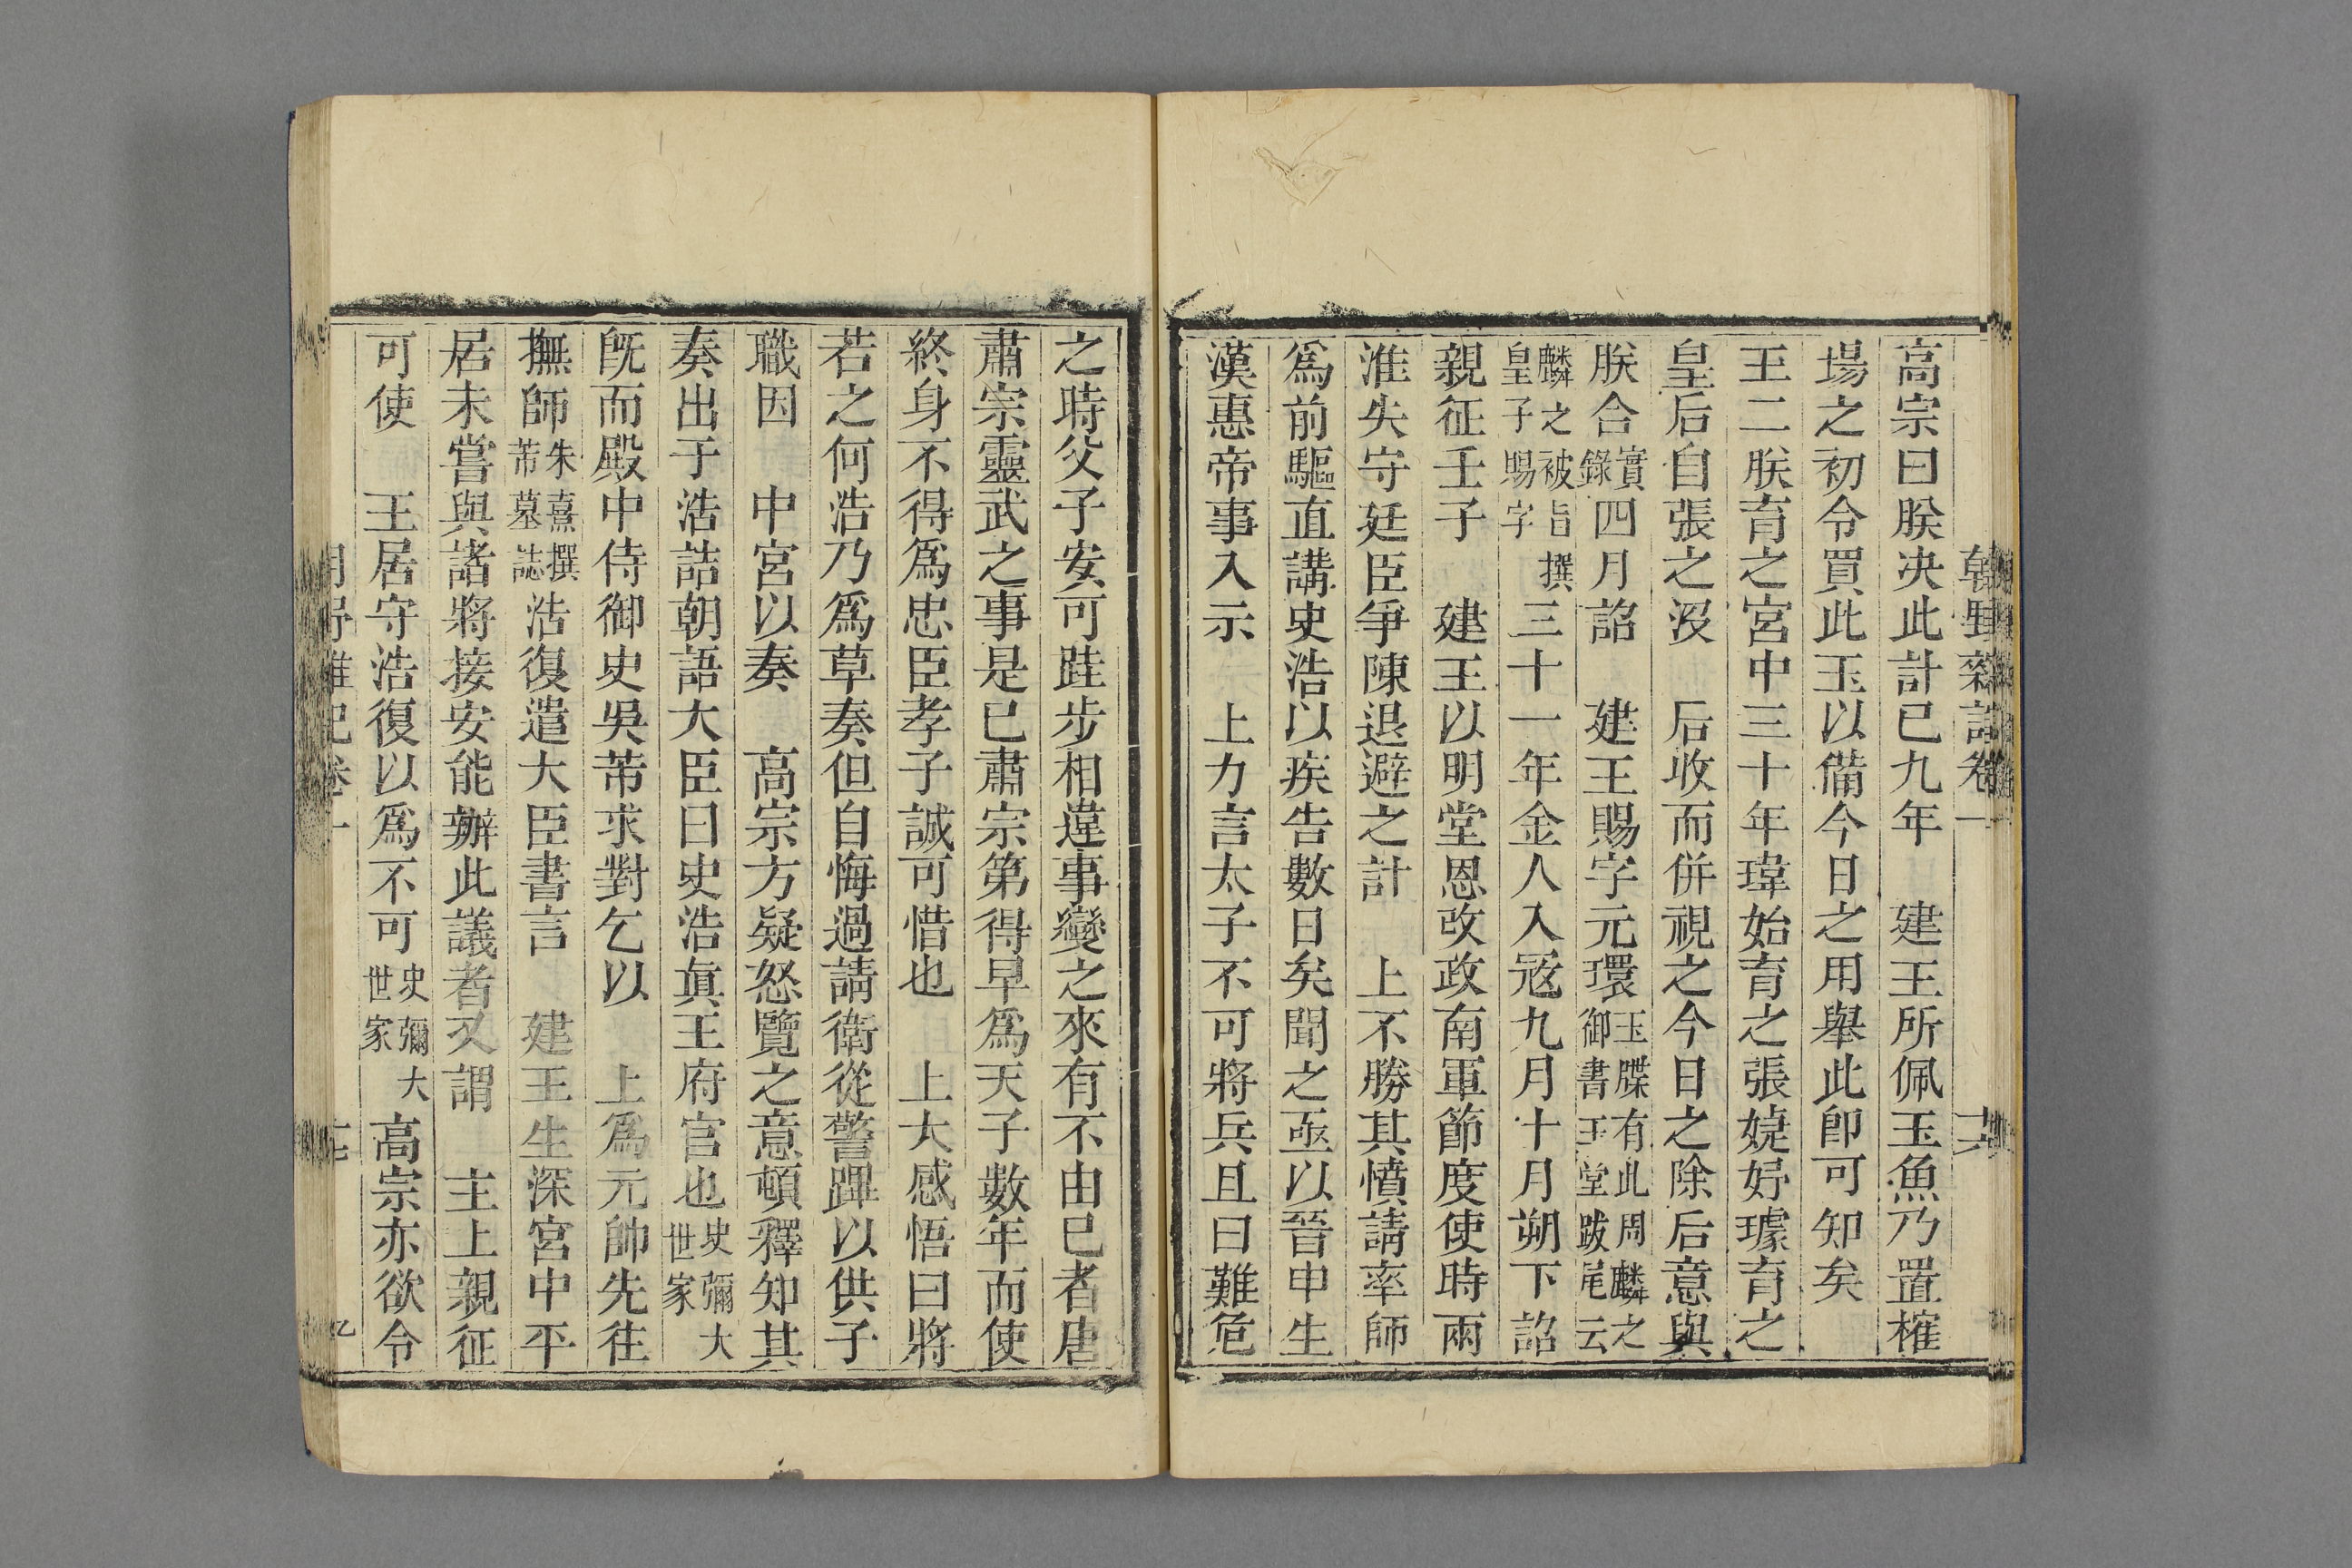 朝野雜記卷一 十六
高宗曰朕决此計已九年 建王所佩玉魚乃置榷
場之初令買此玉以備今日之用舉此卽可知矣
王二朕育之宮中三十年瑋始育之張婕妤璩育之
皇后自張之沒 后收而併視之今日之除后意與
朕合實錄四月詔 建王賜字元瓌玉牒有此周麟之御書玉堂跋尾云
麟之被旨撰皇子賜字三十一年金人入寇九月十月朔下詔
親征壬子 建王以明堂恩改政南軍節度使時兩
淮失守廷臣爭陳退避之計 上不勝其憤請率師
爲前驅直講史浩以疾告數日矣聞之亟以晉申生
漢惠帝事入示 上力言太子不可將兵且曰難危
之時父子安可跬步相違事變之來有不由已者唐
肅宗靈武之事是已肅宗第得早爲天子數年而使
終身不得爲忠臣孝子誠可惜也 上大感悟曰將
若之何浩乃爲草奏但自悔過請衛從警蹕以供子
職因 中宮以奏 高宗方疑怒覽之意頓釋知其
奏出于浩詰朝語大臣曰史浩眞王府官也史彌大世家
旣而殿中侍御史吳芾求對乞以 上爲元帥先往
撫師朱熹撰芾墓誌浩復遣大臣書言 建王生深宮中平
居未嘗與諸將接安能辦此議者又謂 主上親征
可使 王居守浩復以爲不可史彌大世家高宗亦欲令